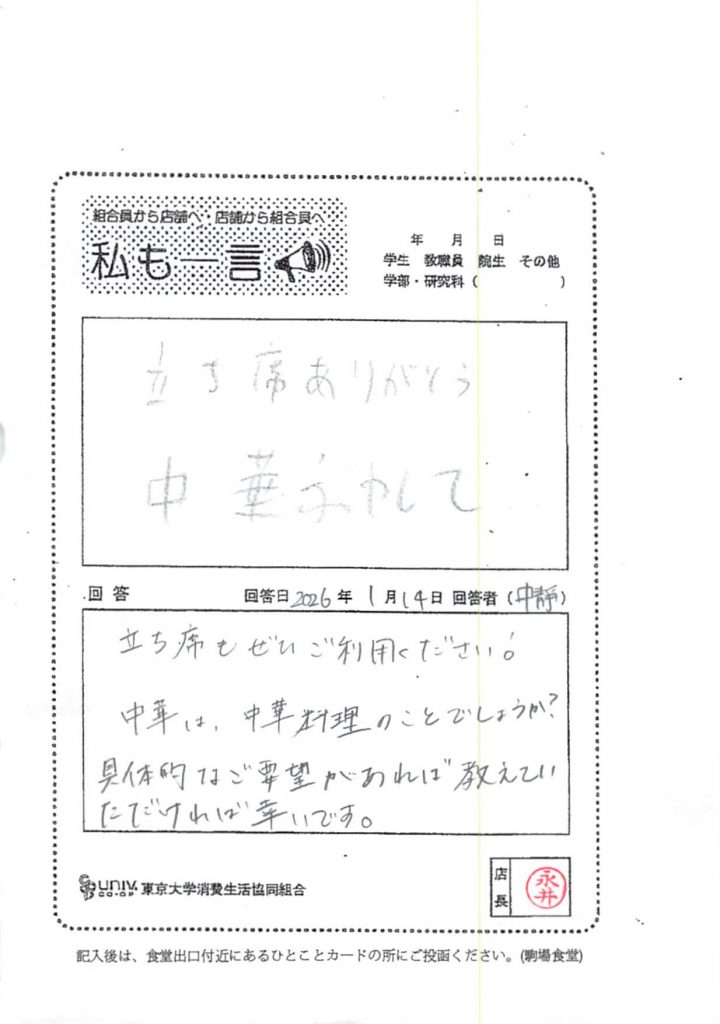 組合員から店舗へ・店舗から組合員へ
私も一言
年 月 日
学生 教職員 院生 その他
学部・研究科（ ）
立ち席ありがとう
中華
して
回答 回答日2026年1月14日 回答者（中静）
立ち席もぜひご利用ください!
中華は、中華料理のことでしょうか?
具体的なご要望があれば教えてい
ただければ幸いです。
UNIV. CO-OP 東京大学消費生活協同組合
店長 永井
記入後は、食堂出口付近にあるひとことカードの所にご投函ください。(駒場食堂)